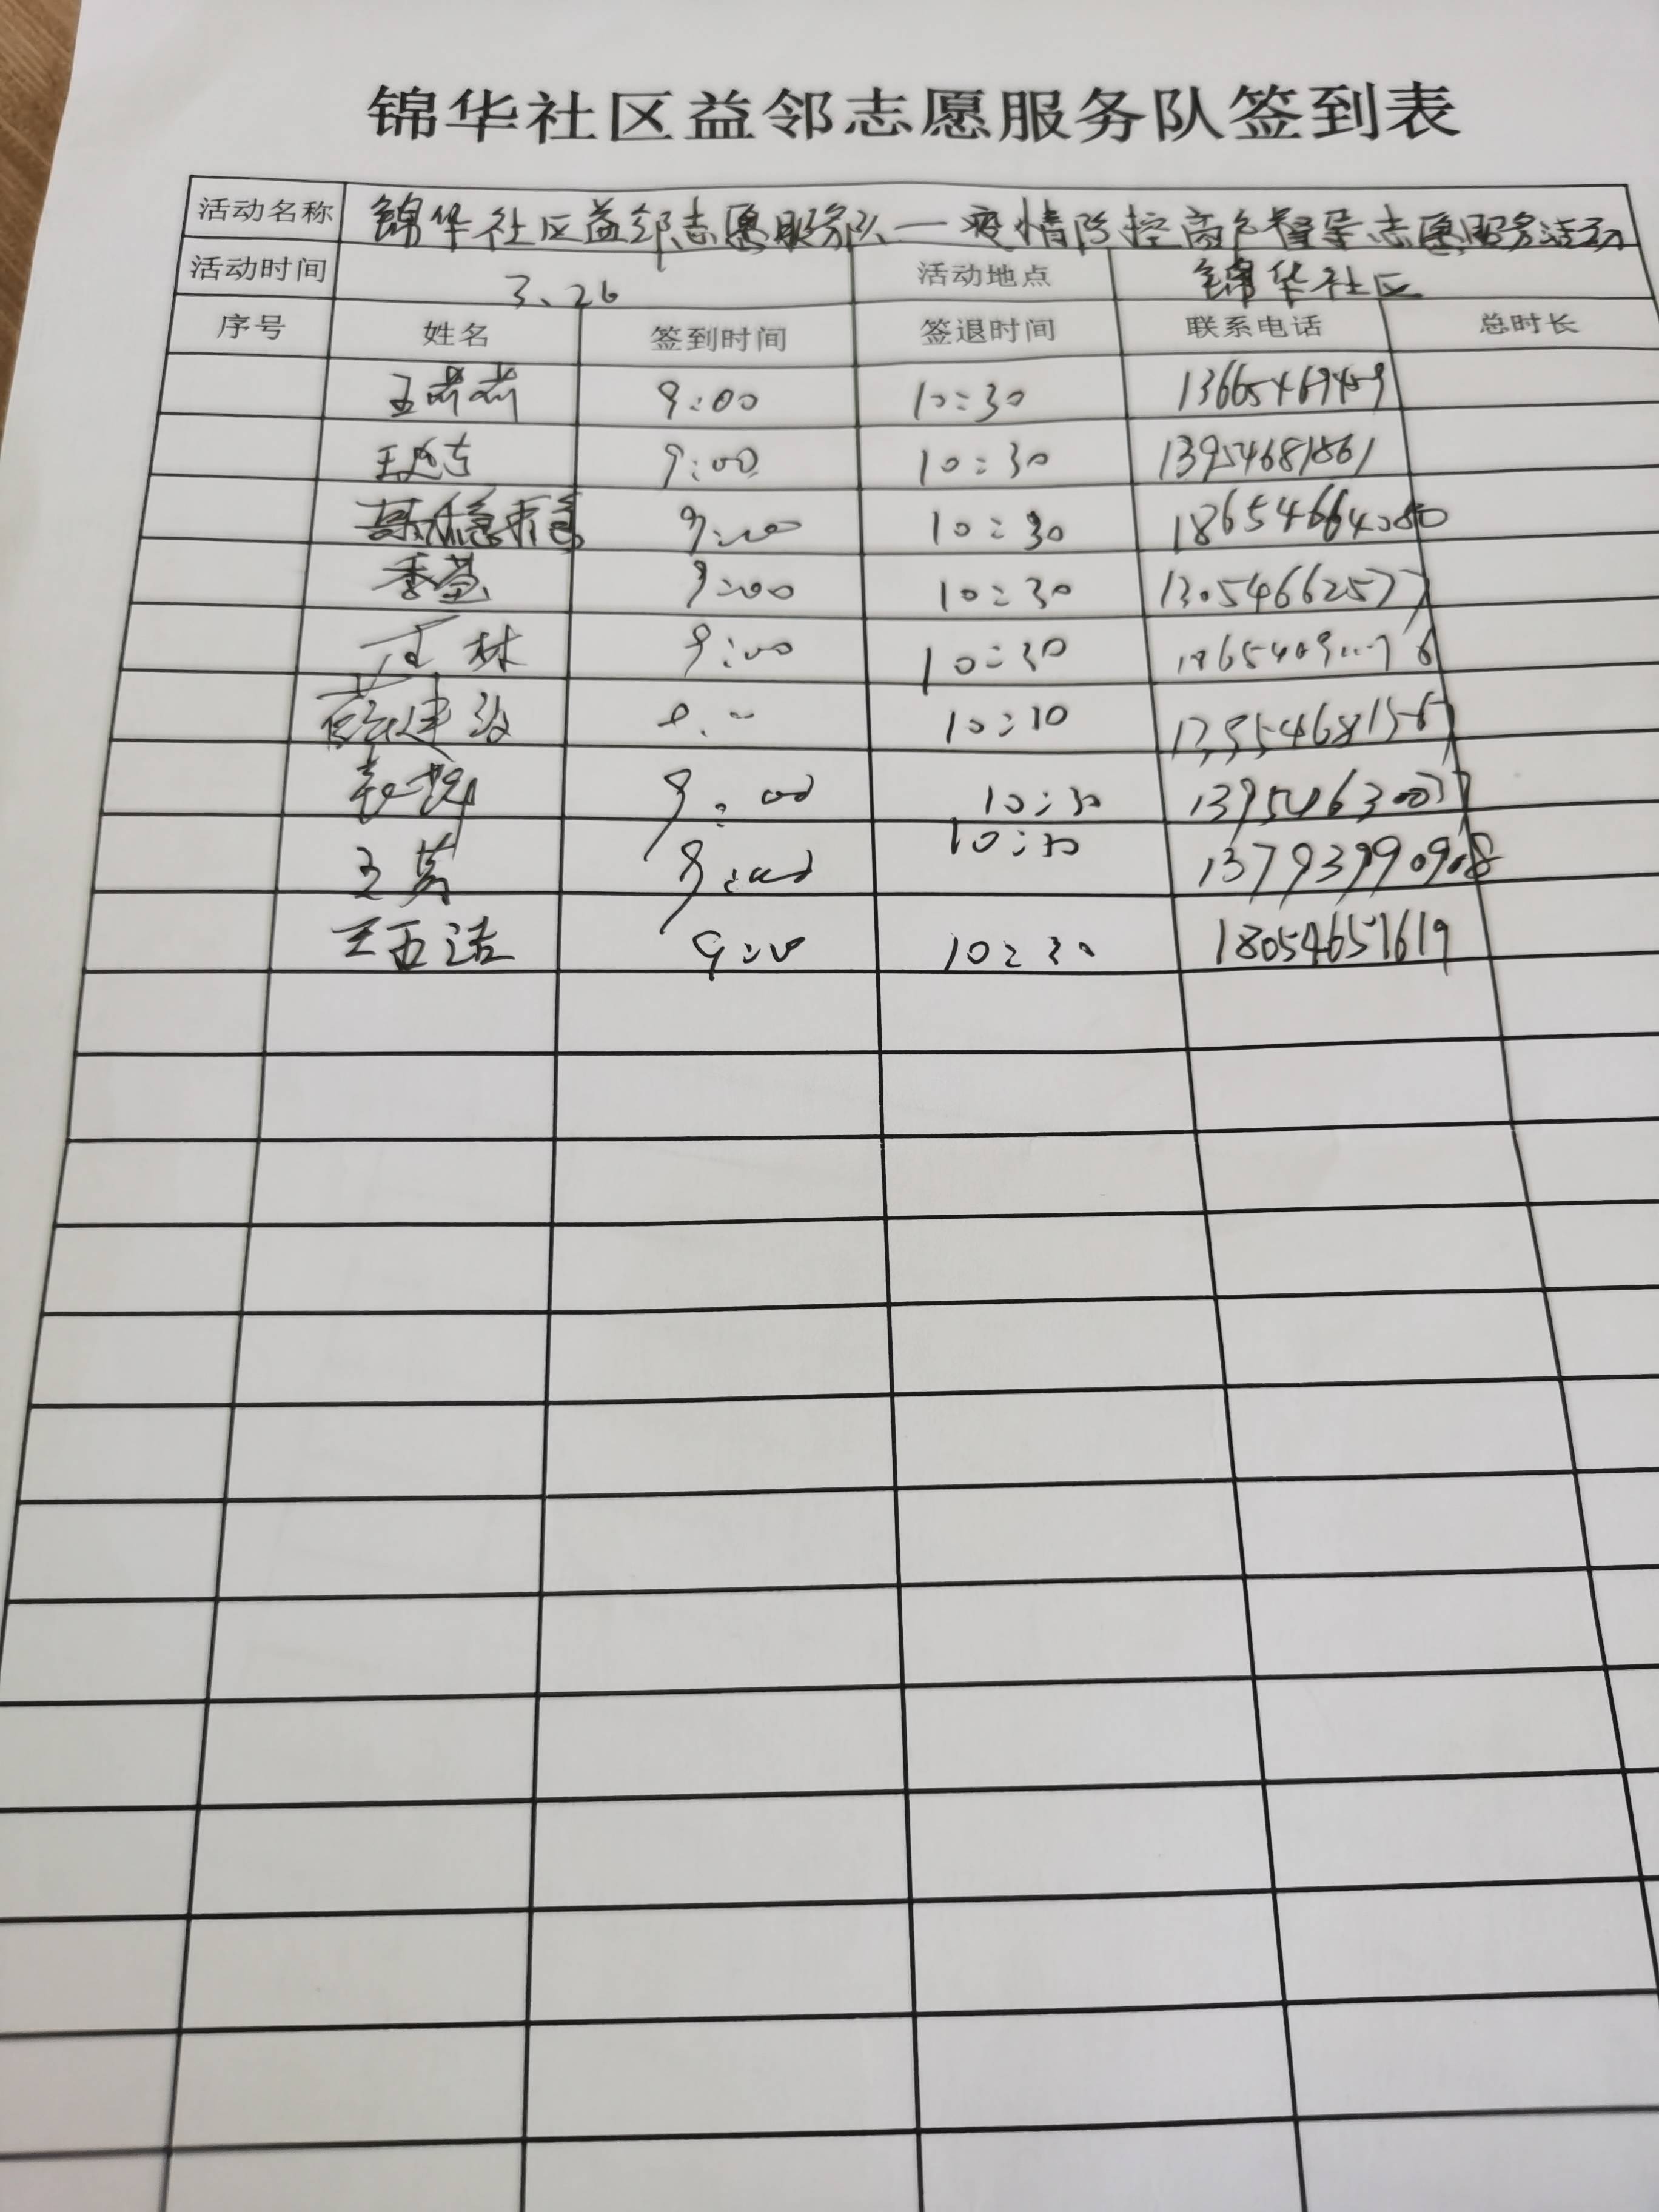 锦华社区益邻志愿服务队签到表
活动名称 锦华社区益邻志愿服务队—疫情防控商户督导志愿服务活动
活动时间 3.26 活动地点 锦华社区
序号 姓名 签到时间 签退时间 联系电话 总时长
王莉莉 9:00 10:30 13665469459
9:00 10:30 13954681861
9:00 10:30 18654664080
季莹 9:00 10:30 13054662577
林 9:00 10:30
建 10:10
9:00 10:30 13954630037
王英 9:00 10:30 13793990908
王玉洁 9:00 10:30 18054651619